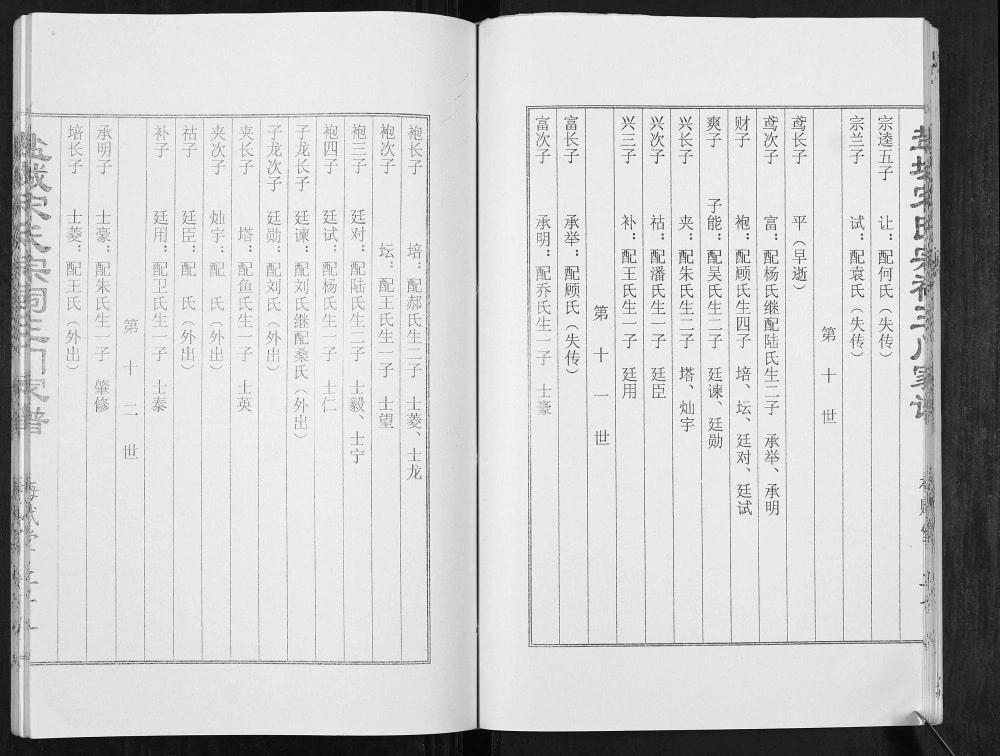 宗逵五子 让：配何氏（失传）
宗兰子 试：配袁氏（失传）
第十世
鸢长子 平（早逝）
鸢次子 富：配杨氏继配陆氏生二子 承举、承明
财子 袍：配顾氏生四子 培、坛、廷对、廷试
爽子 子能：配吴氏生二子 廷谏、廷勋
兴长子 夹：配朱氏生二子 塔、灿宇
兴次子 祜：配潘氏生一子 廷臣
兴三子 补：配王氏生一子 廷用
第十一世
富长子 承举：配顾氏（失传）
富次子 承明：配乔氏生一子 士豪
袍长子 培：配郝氏生二子 士菱、士龙
袍次子 坛：配王氏生一子 士望
袍三子 廷对：配陆氏生二子 士毅、士宁
袍四子 廷试：配杨氏生一子 士仁
子龙长子 廷谏：配刘氏继配桑氏（外出）
子龙次子 廷勋：配刘氏（外出）
夹长子 塔：配鱼氏生一子 士英
夹次子 灿宇：配 氏（外出）
祜子 廷臣：配 氏（外出）
补子 廷用：配卫氏生一子 士泰
第十二世
承明子 士豪：配朱氏生一子 肇修
培长子 士菱：配王氏（外出）
盐城宋氏宗祠三门家谱